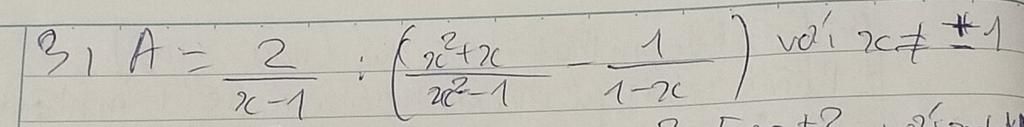 3, A = \frac{2}{x-1} : \left( \frac{x^2+x}{x^2-1} - \frac{1}{1-x} \right) với x ≠ ±1